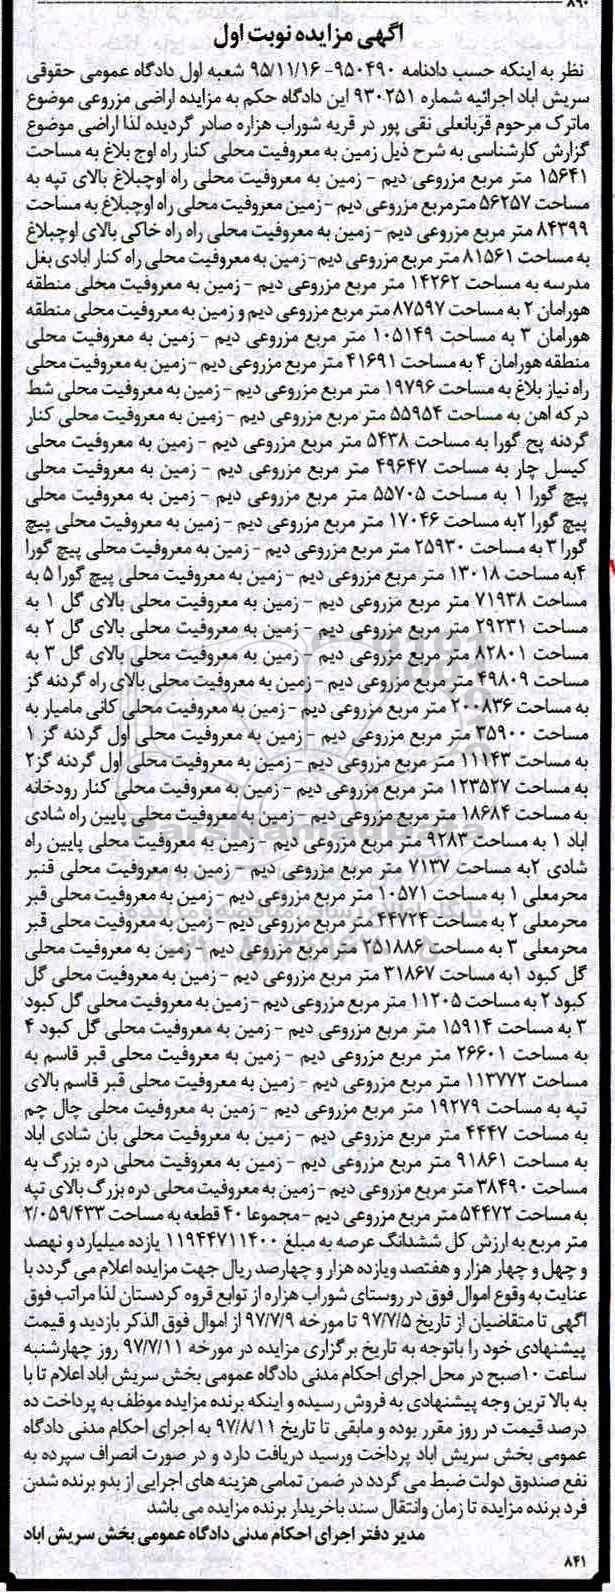 ۸۹۰
آگهی مزایده نوبت اول
نظر به اینکه حسب دادنامه ۹۵۰۴۹۰- ۹۵/۱۱/۱۶ شعبه اول دادگاه عمومی حقوقی
سریش اباد اجرائیه شماره ۹۳۰۲۵۱ این دادگاه حکم به مزایده اراضی مزروعی موضوع
ماترک مرحوم قربانعلی نقی پور در قریه شوراب هزاره صادر گردیده لذا اراضی موضوع
گزارش کارشناسی به شرح ذیل زمین به معروفیت محلی کنار راه اوج بلاغ به مساحت
۱۵۶۴۱ متر مربع مزروعی دیم - زمین به معروفیت محلی راه اوچبلاغ بالای تپه به
مساحت ۵۶۲۵۷ مترمربع مزروعی دیم - زمین معروفیت محلی راه اوچبلاغ به مساحت
۸۴۳۹۹ متر مربع مزروعی دیم - زمین به معروفیت محلی راه راه خاکی بالای اوچبلاغ
به مساحت ۸۱۵۶۱ متر مربع مزروعی دیم- زمین به معروفیت محلی راه کنار ابادی بغل
مدرسه به مساحت ۱۴۲۶۲ متر مربع مزروعی دیم - زمین به معروفیت محلی منطقه
هورامان ۲ به مساحت ۸۷۵۹۷ متر مربع مزروعی دیم و زمین به معروفیت محلی منطقه
هورامان ۳ به مساحت ۱۰۵۱۴۹ متر مربع مزروعی دیم - زمین به معروفیت محلی
منطقه هورامان ۴ به مساحت ۴۱۶۹۱ متر مربع مزروعی دیم - زمین به معروفیت محلی
راه نیاز بلاغ به مساحت ۱۹۷۹۶ متر مربع مزروعی دیم - زمین به معروفیت محلی شط
درکه اهن به مساحت ۵۵۹۵۴ متر مربع مزروعی دیم - زمین به معروفیت محلی کنار
گردنه پچ گورا به مساحت ۵۴۳۸ متر مربع مزروعی دیم - زمین به معروفیت محلی
کیسل چار به مساحت ۴۹۶۴۷ متر مربع مزروعی دیم - زمین به معروفیت محلی
پیچ گورا ۱ به مساحت ۵۵۷۰۵ متر مربع مزروعی دیم - زمین به معروفیت محلی
پیچ گورا ۲به مساحت ۱۷۰۴۶ متر مربع مزروعی دیم - زمین به معروفیت محلی پیچ
گورا ۳ به مساحت ۲۵۹۳۰ متر مربع مزروعی دیم - زمین به معروفیت محلی پیچ گورا
۴به مساحت ۱۳۰۱۸ متر مربع مزروعی دیم - زمین به معروفیت محلی پیچ گورا ۵ به
مساحت ۷۱۹۳۸ متر مربع مزروعی دیم - زمین به معروفیت محلی بالای گل ۱ به
مساحت ۲۹۲۳۱ متر مربع مزروعی دیم - زمین به معروفیت محلی بالای گل ۲ به
مساحت ۸۲۸۰۱ متر مربع مزروعی دیم - زمین به معروفیت محلی بالای گل ۳ به
مساحت ۴۹۸۰۹ متر مربع مزروعی دیم - زمین به معروفیت محلی بالای راه گردنه گز
به مساحت ۲۰۰۸۳۶ متر مربع مزروعی دیم - زمین به معروفیت محلی کانی مامیار به
مساحت ۳۵۹۰۰ متر مربع مزروعی دیم - زمین به معروفیت محلی اول گردنه گز ۱
به مساحت ۱۱۱۴۳ متر مربع مزروعی دیم - زمین به معروفیت محلی اول گردنه گز۲
به مساحت ۱۲۳۵۲۷ متر مربع مزروعی دیم - زمین به معروفیت محلی کنار رودخانه
به مساحت ۱۸۶۸۴ متر مربع مزروعی دیم - زمین به معروفیت محلی پایین راه شادی
اباد ۱ به مساحت ۹۲۸۳ متر مربع مزروعی دیم - زمین به معروفیت محلی پایین راه
شادی ۲به مساحت ۷۱۳۷ متر مربع مزروعی دیم - زمین به معروفیت محلی قنبر
محرمعلی ۱ به مساحت ۱۰۵۷۱ متر مربع مزروعی دیم - زمین به معروفیت محلی قبر
محرمعلی ۲ به مساحت ۴۴۷۲۴ متر مربع مزروعی دیم - زمین به معروفیت محلی قبر
محرمعلی ۳ به مساحت ۲۵۱۸۸۶ متر مربع مزروعی دیم - زمین به معروفیت محلی
گل کبود ۱به مساحت ۳۱۸۶۷ متر مربع مزروعی دیم - زمین به معروفیت محلی گل
کبود ۲ به مساحت ۱۱۲۰۵ متر مربع مزروعی دیم - زمین به معروفیت محلی گل کبود
۳ به مساحت ۱۵۹۱۴ متر مربع مزروعی دیم - زمین به معروفیت محلی گل کبود ۴
به مساحت ۲۶۶۰۱ متر مربع مزروعی دیم - زمین به معروفیت محلی قبر قاسم به
مساحت ۱۱۳۷۷۲ متر مربع مزروعی دیم - زمین به معروفیت محلی قبر قاسم بالای
تپه به مساحت ۱۹۲۷۹ متر مربع مزروعی دیم - زمین به معروفیت محلی چال چم
به مساحت ۴۴۴۷ متر مربع مزروعی دیم - زمین به معروفیت محلی بان شادی اباد
به مساحت ۹۱۸۶۱ متر مربع مزروعی دیم - زمین به معروفیت محلی دره بزرگ به
مساحت ۳۸۴۹۰ متر مربع مزروعی دیم - زمین به معروفیت محلی دره بزرگ بالای تپه
به مساحت ۵۴۴۷۲ متر مربع مزروعی دیم - مجموعا ۴۰ قطعه به مساحت ۲/۰۵۹/۴۳۳
متر مربع به ارزش کل ششدانگ عرصه به مبلغ ۱۱۹۴۴۷۱۱۴۰۰ یازده میلیارد و نهصد
و چهل و چهار هزار و هفتصد ویازده هزار و چهارصد ریال جهت مزایده اعلام می گردد با
عنایت به وقوع اموال فوق در روستای شوراب هزاره از توابع قروه کردستان لذا مراتب فوق
اگهی تا متقاضیان از تاریخ ۹۷/۷/۵ تا مورخه ۹۷/۷/۹ از اموال فوق الذکر بازدید و قیمت
پیشنهادی خود را باتوجه به تاریخ برگزاری مزایده در مورخه ۹۷/۷/۱۱ روز چهارشنبه
ساعت ۱۰صبح در محل اجرای احکام مدنی دادگاه عمومی بخش سریش اباد اعلام تا با
به بالا ترین وجه پیشنهادی به فروش رسیده و اینکه برنده مزایده موظف به پرداخت ده
درصد قیمت در روز مقرر بوده و مابقی تا تاریخ ۹۷/۸/۱۱ به اجرای احکام مدنی دادگاه
عمومی بخش سریش اباد پرداخت ورسید دریافت دارد و در صورت انصراف سپرده به
نفع صندوق دولت ضبط می گردد در ضمن تمامی هزینه های اجرایی از بدو برنده شدن
فرد برنده مزایده تا زمان وانتقال سند باخریدار برنده مزایده می باشد
مدیر دفتر اجرای احکام مدنی دادگاه عمومی بخش سریش اباد
۸۴۱
ParsNamadData